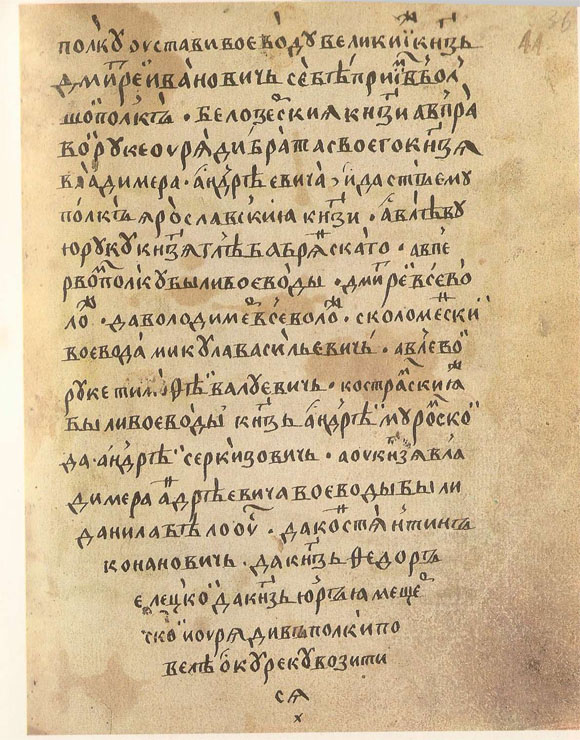 полкꙋ оустави воеводꙋ великиї кнѧзь
дмитреї ивановичь себѣ приїѧ въ бол
шоⷨ полкъ · белоѕеⷬскиꙗ кнѧзи а в пра
воⷨ рꙋке оурѧди брата своего кнѧзѧ
владимера · андрѣевича , и дастъ емꙋ
полкъ ꙗрославскиꙗ кнѧзи · а в лѣвꙋ
ю рꙋкꙋ кнѧзѧ глѣба брѧⷩскаго · а в пе
рвоⷨ полкꙋ были воеводы · дмитреⷤ всево
лоⷤ · да володимеⷬ всеволоⷤ · с коломеⷩски
воевода микꙋла васильевичь · а в лево
рꙋке тим ѳѣ валꙋевичь · костраⷨскиꙗ
были воеводы кнѧзь андрѣ мꙋроⷨско
да андрѣ серкизовичь · а оу кнѧзѧ вла
димера аⷩдрѣевича воеводы были
данила бѣлооуⷭ · да костѧнтинъ
конановичь · да кнѧзь ѳедоръ
елецко да кнѧзь юръꙗ мещеⷬ
ско и оурѧдивъ полки по
велѣ ѻкꙋ рекꙋ возити
сѧ
36